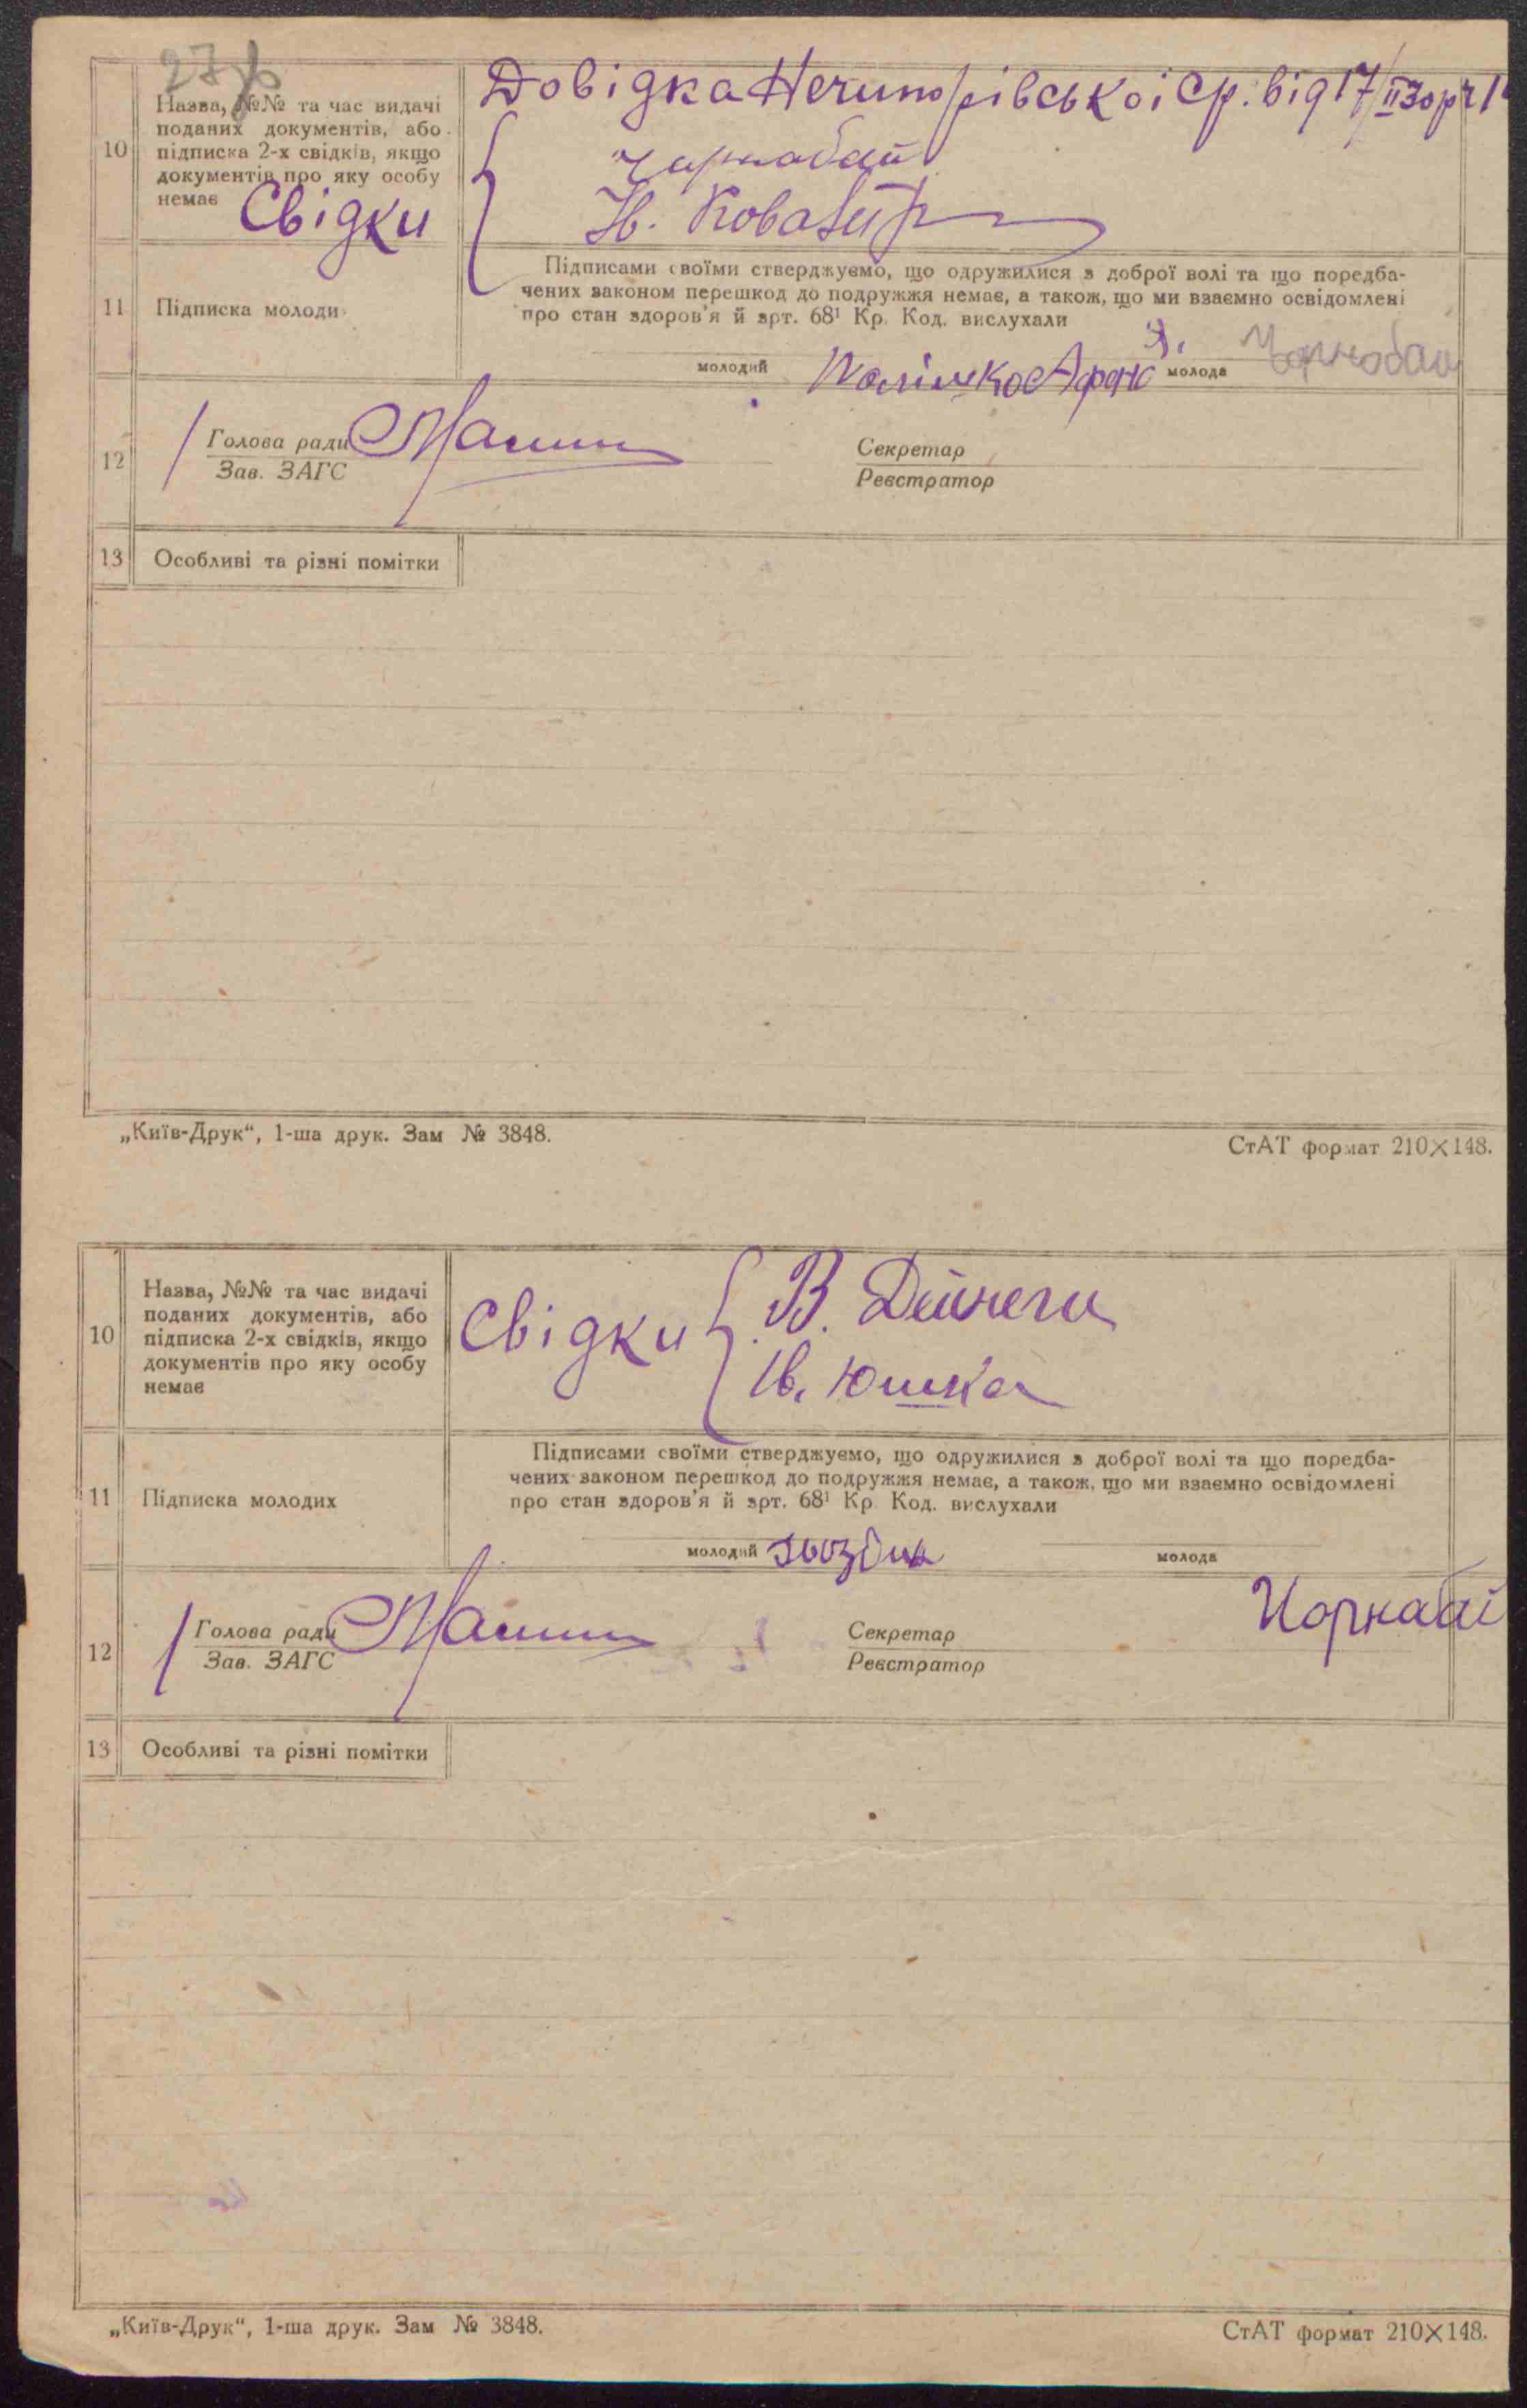 10
Назва, №№ та час видачі
поданих документів, або
підписка 2-х свідків, якщо
документів про яку особу
немає
Свідки
Довідка Нечипорівської ср. від 17/II 30р
Чорнобай
11
Підписка молоди
Підписами своїми стверджуємо, що одружилися з доброї волі та що поредба-
чених законом перешкод до подружжя немає, а також, що ми взаємно освідомлені
про стан здоров'я й арт. 68¹ Кр. Код. вислухали
молодий
молода Чорнобай
12
Голова ради
Зав. ЗАГС
Секретар
Реєстратор
13
Особливі та різні помітки
„Київ-Друк“, 1-ша друк. Зам № 3848.
СтАТ формат 210×148.
10
Назва, №№ та час видачі
поданих документів, або
підписка 2-х свідків, якщо
документів про яку особу
немає
Свідки
В. Дейнеги
Ів. Юшка
11
Підписка молодих
Підписами своїми стверджуємо, що одружилися з доброї волі та що поредба-
чених законом перешкод до подружжя немає, а також, що ми взаємно освідомлені
про стан здоров'я й арт. 68¹ Кр. Код. вислухали
молодий
молода
Чорнабаі
12
Голова ради
Зав. ЗАГС
Секретар
Реєстратор
13
Особливі та різні помітки
„Київ-Друк“, 1-ша друк. Зам № 3848.
СтАТ формат 210×148.